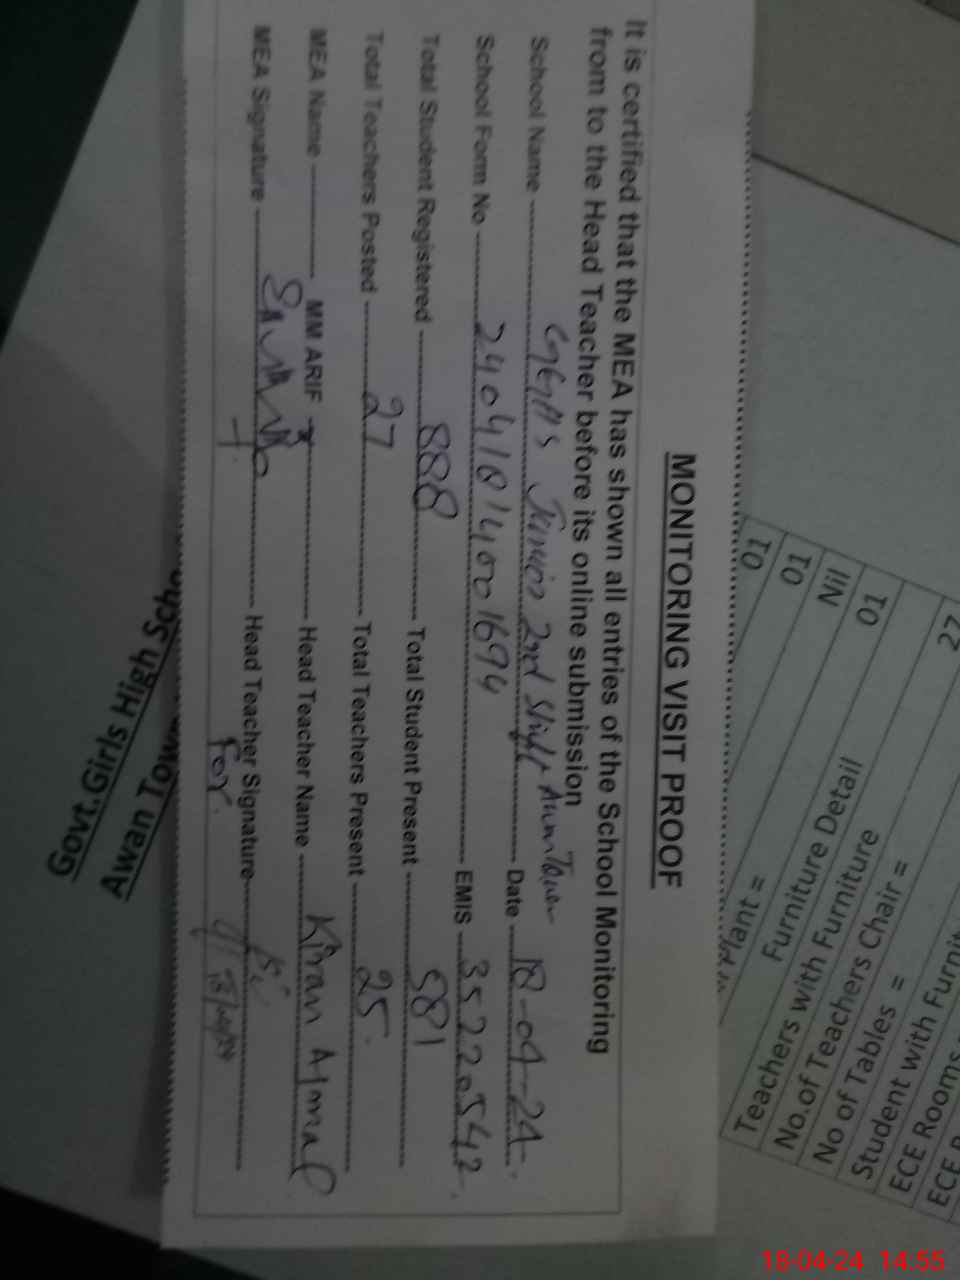 MONITORING VISIT PROOF
It is certified that the MEA has shown all entries of the School Monitoring
from to the Head Teacher before its online submission
School Name GGHS Junior 2nd Shift Awan Town Date 18-04-24.
School Form No 24041814001694 EMIS 35220542.
Total Student Registered 888 Total Student Present 581
Total Teachers Posted 27 Total Teachers Present 25.
MEA Name MM ARIF Head Teacher Name Kiran Ajmal
MEA Signature Head Teacher Signature
For.
Govt.Girls High
Awan
01
01
Nil
01
27
Plant =
Furniture Detail
Teachers with Furniture
No.of Teachers Chair =
No of Tables =
Student with
ECE Rooms
ECE
18-04-24 14:55